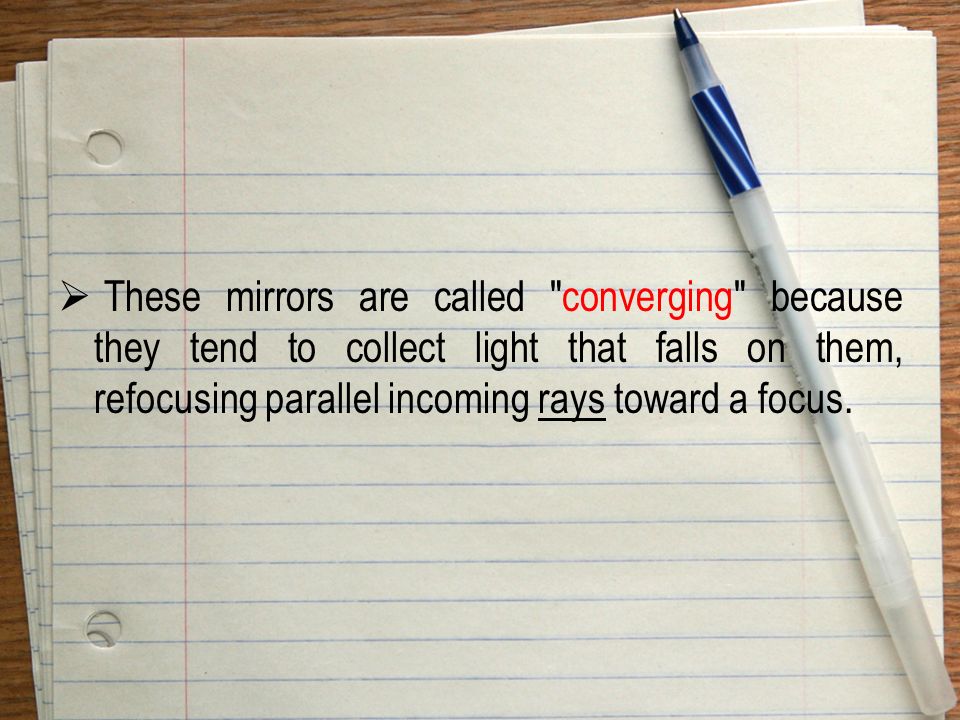 ➢ These mirrors are called "converging" because
they tend to collect light that falls on them,
refocusing parallel incoming rays toward a focus.